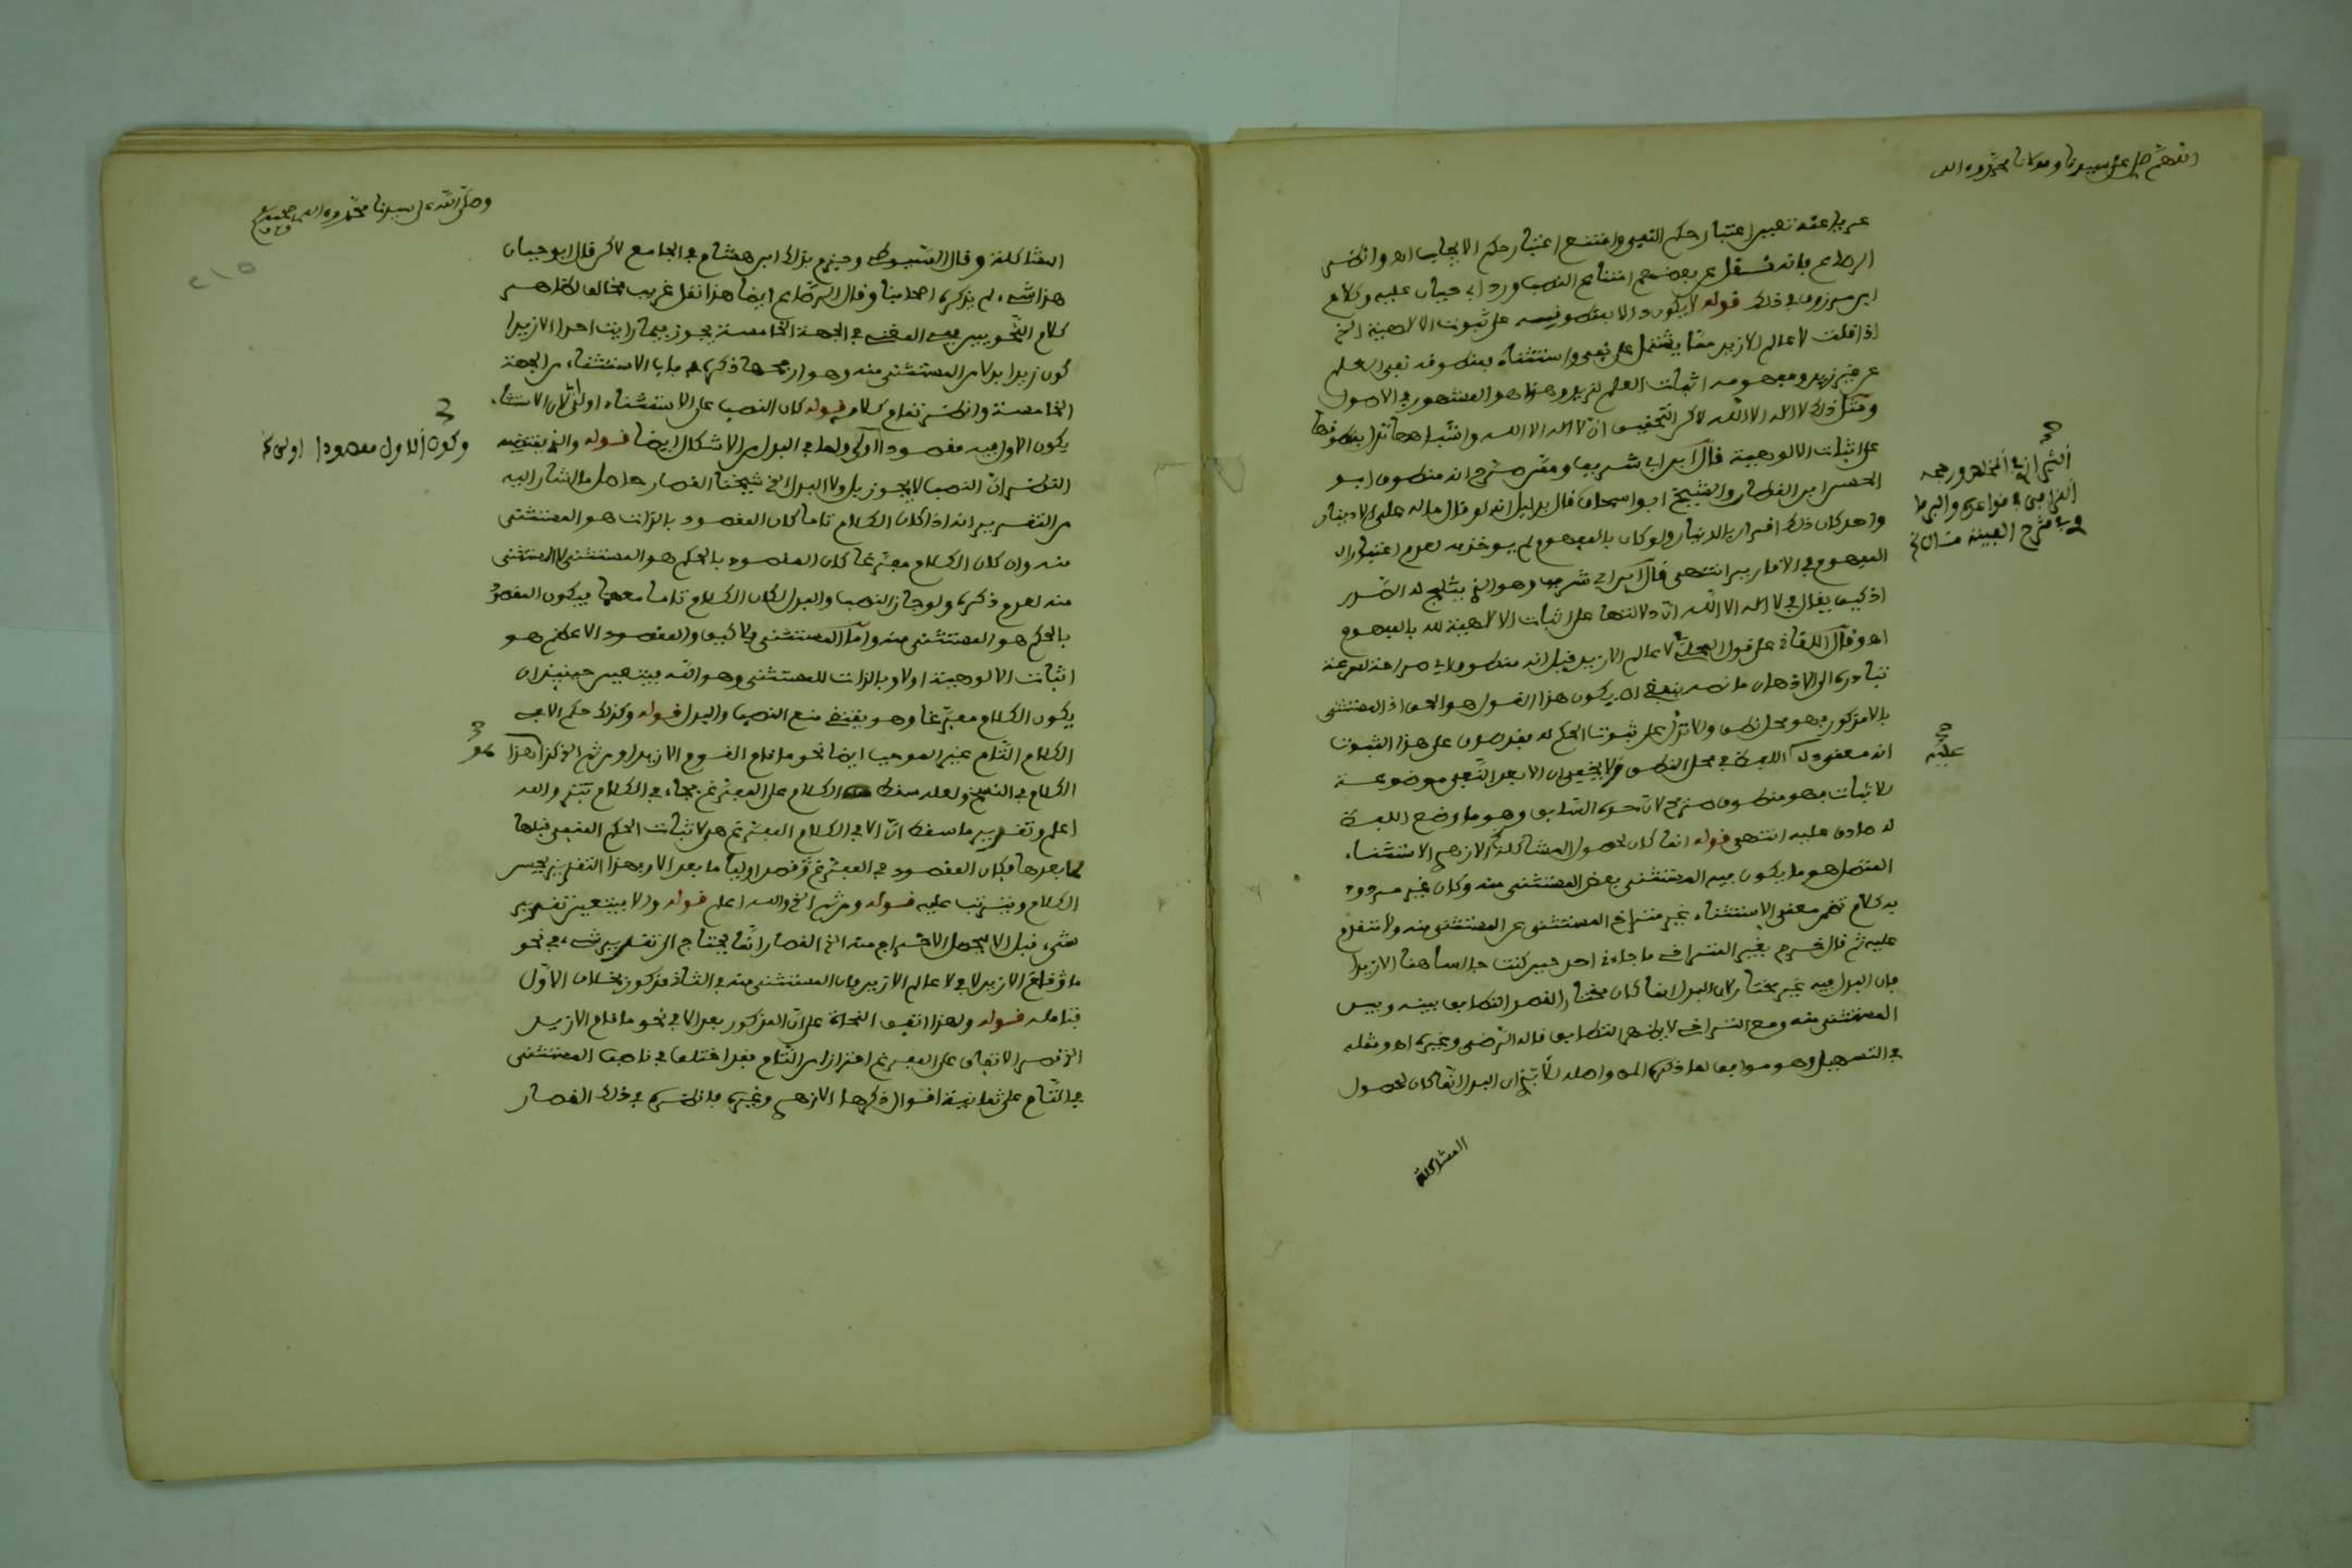 اللهم صل على سيدنا ومولانا محمد وءاله
اعتبار حكم النفي وامتنع اعتبار حكم الايجاب اه وانظر
فانه نقل عن بعضهم امتناع النصب ورد ابي حيان عليه وكلام
ابن مرزوق في ذلك قوله لا يكون دالا بمنطوقه على ثبوت الالهية الخ
اذا قلت لا عالم الا زيد مما يشتمل على نفي واستثناء بمنطوقه نفي العلم
عن غير زيد ومفهومه اثبات العلم لزيد وهذا هو المشهور في الاصول
ومثل ذلك لا اله الا الله لاكن التحقيق ان لا اله الا الله واشباهها تدل بمنطوقها
على اثبات الالوهية قال ابن ابي شريف وممن صرح انه منطوق ابو
الحسن ابن القطان والشيخ ابو اسحاق قال بدليل انه لو قال ما له علي الا دينار
واحد كان ذلك اقرارا بالدينار ولو كان بالمفهوم لم يؤاخذ به لعدم اعتبار
المفهوم في الاقارير انتهى قال ابن ابي شريف وهو الذي يثلج له الصدر
اذ كيف يقال في لا اله الا الله ان دلالتها على اثبات الالهية لله بالمفهوم
اه وقال اللقاني على قول المحلي لا عالم الا زيد قيل انه منطوق اي صراحة لسرعة
تبادره الى الاذهان ما نصه ينبغي ان يكون هذا القول هو الحق اذ المستثنى
بالا مذكور فهو محل نطق والا تدل على ثبوت الحكم له فقد صدق على هذا الثبوت
انه معنى دل اللفظ في محل النطق ولا يخفى ان الا بعد النفي موضوعة
للاثبات فهو منطوق صريح لان حده السابق وهو ما وضع اللفظ
له صادق عليه انتهى قوله انما كان لحصول المشاكلة الازهري الاستثناء
المتصل هو ما يكون فيه المستثنى بعض المستثنى منه وكان غير مردود
به كلام تضمن معنى الاستثناء غير متراخ المستثنى عن المستثنى منه ولا متقدم
عليه ثم قال خرج بغير التراخي ما جاءني احد حين كنت جالسا هنا الا زيدا
فان البدل فيه غير مختار لان البدل انما كان مختارا لقصد التطابق بينه وبين
المستثنى منه ومع التراخي لا يظهر التطابق قاله الرضي وغيره اه ومثله
في التسهيل وهو موافق لما ذكره ان البدل انما كان لحصول
المشاكلة
عليه
وصلى الله على سيدنا محمد وءاله وصحبه
٢١٥
المشاكلة وقال السيوطي وجزم بذلك ابن هشام في الجامع لاكن قال ابو حيان
هذا شيء لم يذكره اصحابنا وقال ايضا هذا نقل غريب مخالف لظاهر
كلام النحويين وفي المغني في الجهة الخامسة يجوز فيما رايت احدا الا زيدا
كون زيدا بدلا من المستثنى منه وهو ارجحها ذكره في باب الاستثناء من الجهة
الخامسة وانظر تمام كلامه قوله كان النصب على الاستثناء اولى لان الاستثناء
يكون الاول فيه مقصودا اولى ولما في البدل من الاشكال ايضا قوله والذي يقتضيه
النظر ان النصب لا يجوز بل ولا البدل الخ شيخنا القصار حاصل ما اشار اليه
من التقرير انه اذا كان الكلام تاما كان المقصود بالذات هو المستثنى
منه وان كان الكلام مفرغا كان المقصود بالحكم هو المستثنى لا المستثنى
منه لعدم ذكره ولو جاز النصب والبدل لكان الكلام تاما معهما فيكون المقصود
بالحكم هو المستثنى منه واما المستثنى فلا كيف والمقصود الاعظم هو
اثبات الالوهية اولا وبالذات للمستثنى وهو الله فيتعين حينئذ ان
يكون الكلام مفرغا وهو يقتضي منع النصب والبدل قوله وكذلك حكم الا في
الكلام التام غير الموجب ايضا نحو ما قام القوم الا زيد ومن ثم الخ كذا هذا
الكلام في النسخ ولعله سقط الكلام على المفرغ فجاء في الكلام بتر والله
اعلم وتقرير ما سقط ان الا في الكلام المفرغ هي لاثبات الحكم المنفي قبلها
لما بعدها فكان المقصود في المفرغ قصدا اوليا ما بعد الا وبهذا التقرير يحسن
الكلام ويترتب عليه قوله ومن ثم الخ والله اعلم قوله ولا يتعين تقدير
شيء قبل الا يحصل الاخراج منه الخ القصار انما يحتاج الى تقدير شيء في نحو
ما قام الا زيد لا في لا عالم الا زيد فان المستثنى منه في الثاني مذكور بخلاف الاول
فتامله قوله ولهذا اتفق النحاة على ان المذكور بعد الا في نحو ما قام الا زيد
الخ قصر الاتفاق على المفرغ احترازا من التام فقد اختلف في ناصب المستثنى
في التام على ثمانية اقوال ذكرها الازهري وغيره فانظره في ذلك القصار
وكون الاول مقصودا اولى